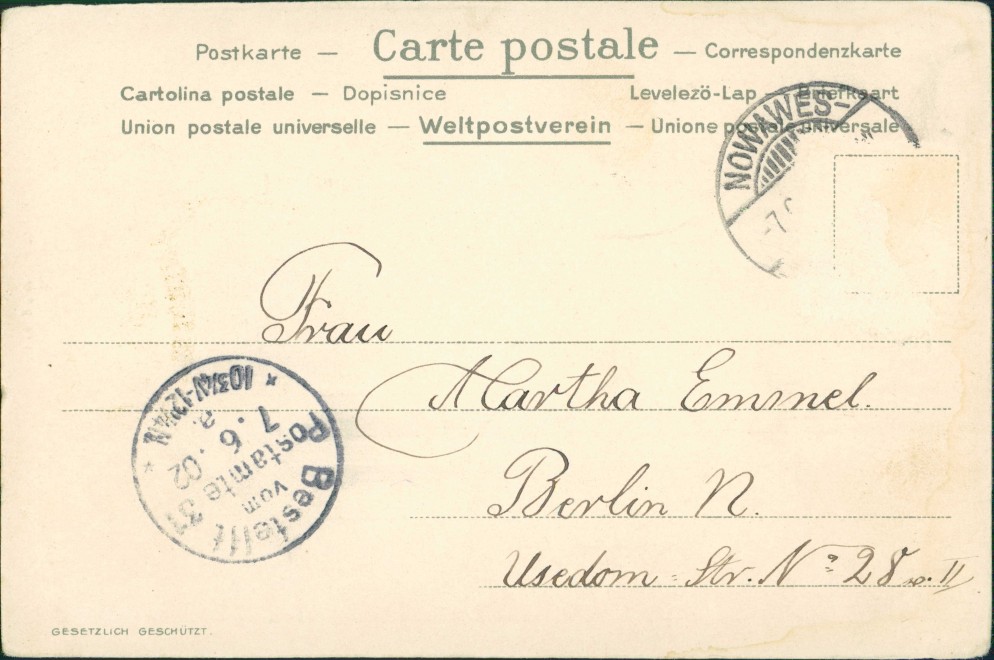 Postkarte — Carte postale — Correspondenzkarte
Cartolina postale — Dopisnice Levelezö-Lap — Briefkaart
Union postale universelle — Weltpostverein — Unione postale universale
NOWAWES-
-7.
Frau
Martha Emmel.
Berlin N.
Usedom-Str. No 28 II
Bestellt
vom
Postamte 31
7.6.02
a.
10¾N-12¼N
GESETZLICH GESCHÜTZT.